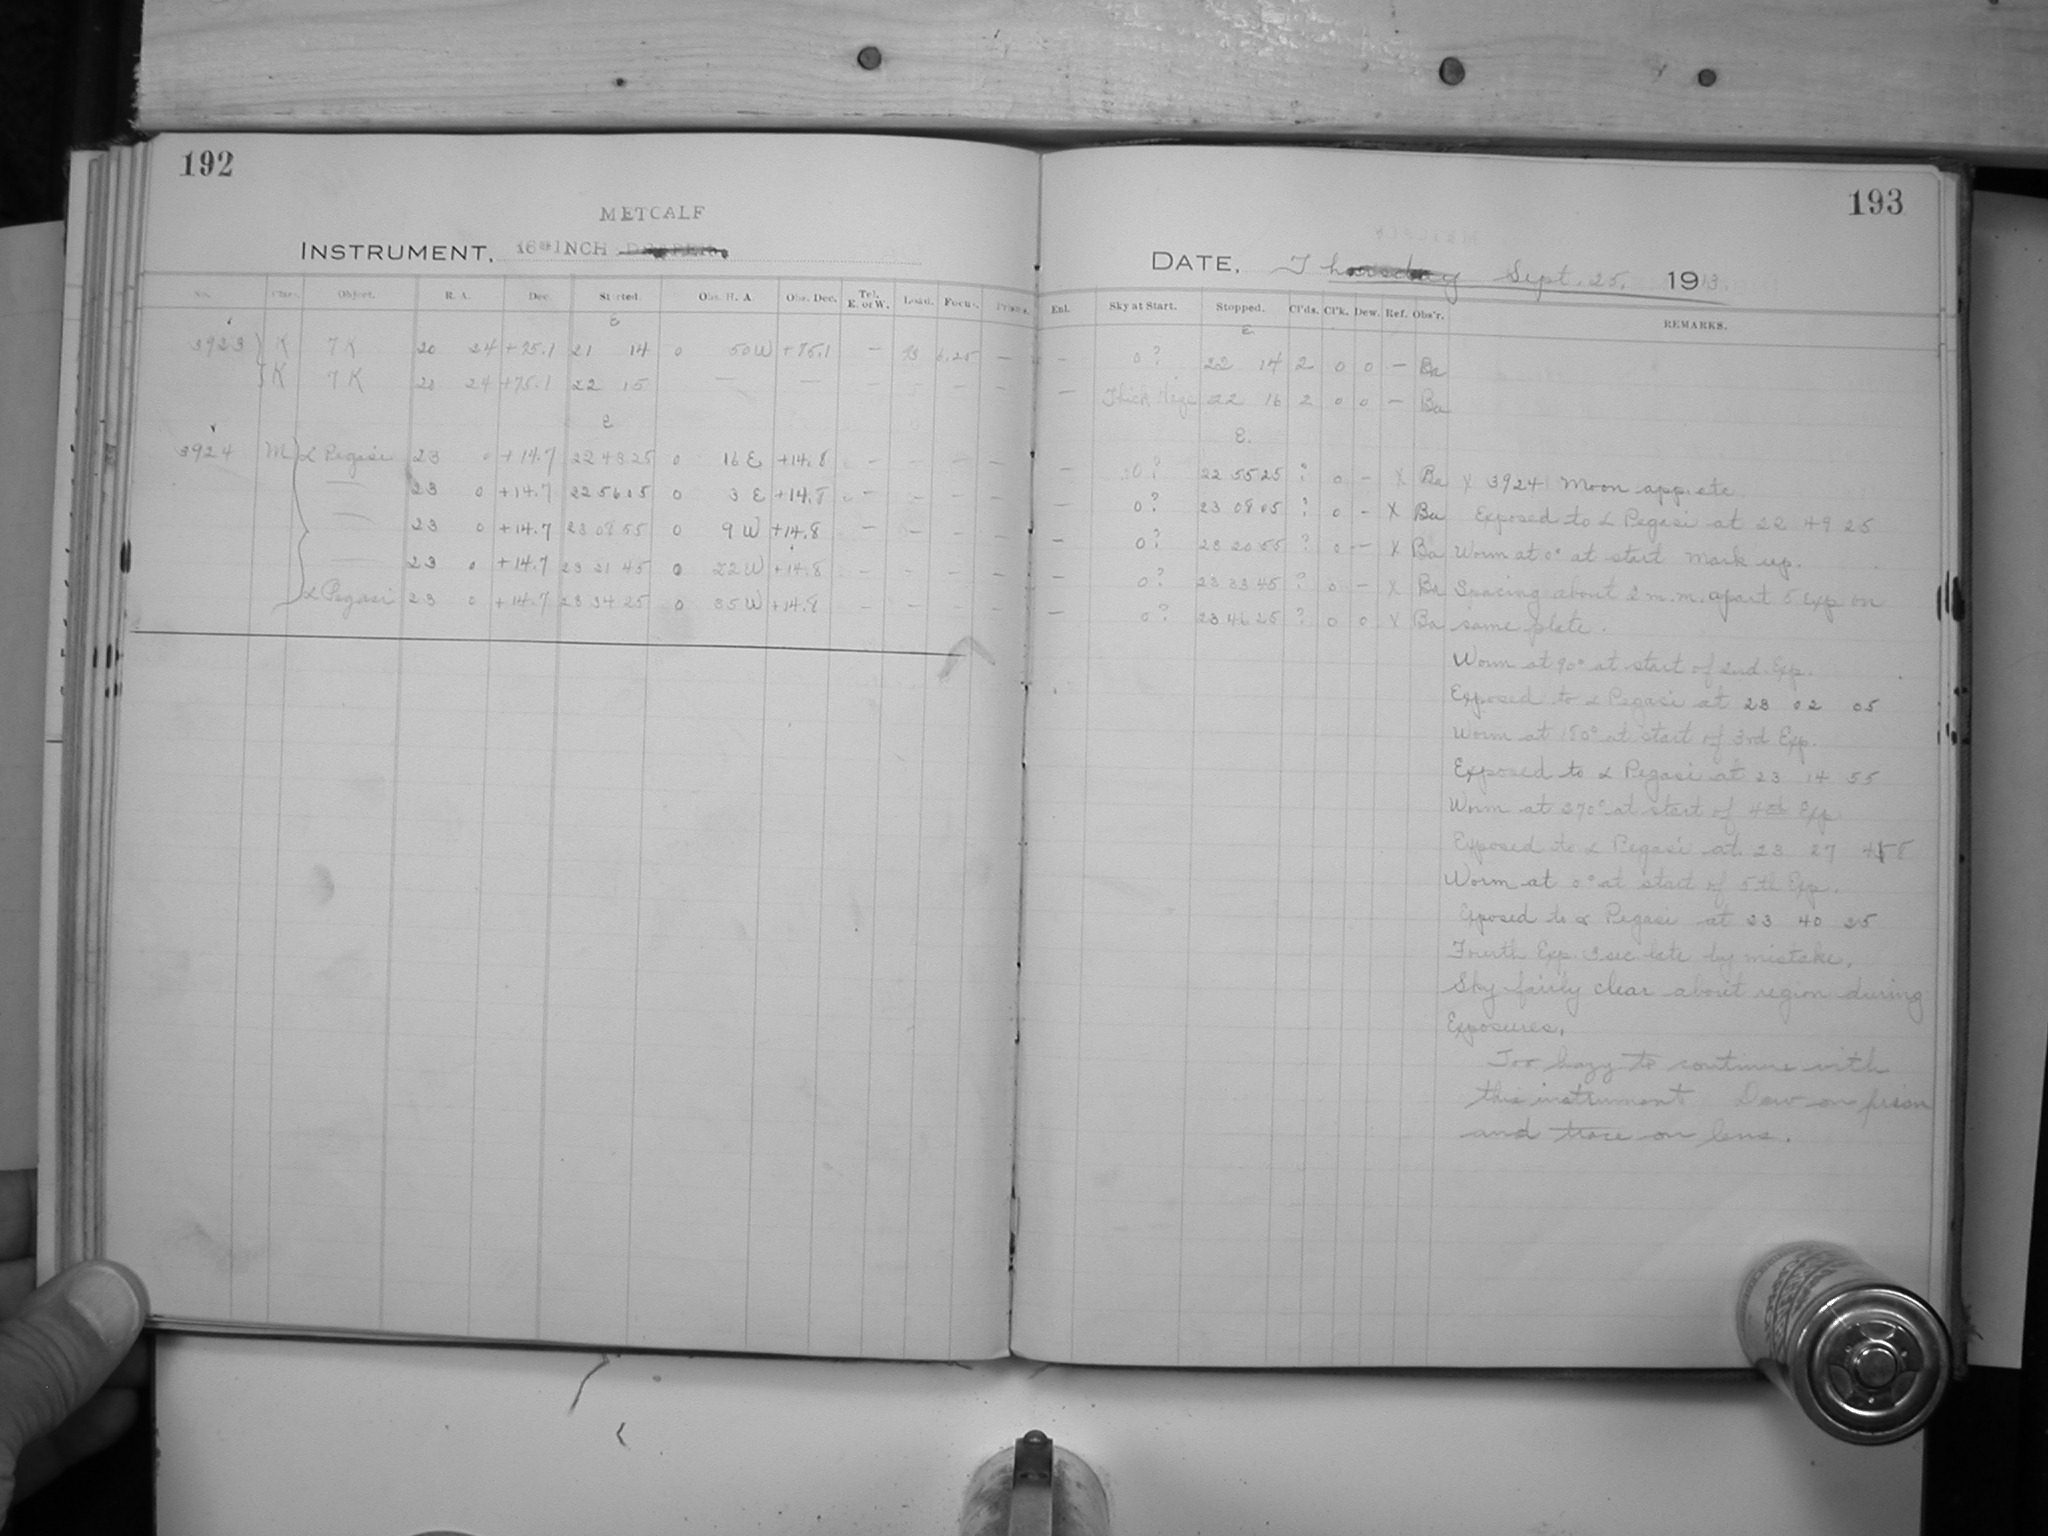 192
METCALF
INSTRUMENT, 16 INCH
No. Class. Object. R. A. Dec. Started. Obs. H. A. Obs. Dec. Tel. E. or W. Load. Focus. Prisms.
E
3923 K 7K 20 24 +75.1 21 14 0 50W +75.1 — 6.25 —
K 7K 20 24 +75.1 22 15 — — — — —
E
3924 M α Pegasi 23 0 +14.7 22 43 25 0 16 E +14.8 — — — —
— 23 0 +14.7 22 56 05 0 3 E +14.8 — — — —
— 23 0 +14.7 23 08 55 0 9 W +14.8 — — — —
— 23 0 +14.7 23 21 45 0 22 W +14.8 — — — —
α Pegasi 23 0 +14.7 23 34 25 0 35 W +14.8 — — — —
193
DATE, Thursday Sept. 25, 1913.
Enl. Sky at Start. Stopped. Cl'ds. Cl'k. Dew. Ref. Obs'r. REMARKS.
E
— 0? 22 14 2 0 0 — Ba
— Thick Haze 22 16 2 0 0 — Ba
E.
— 0? 22 55 25 ? 0 — X Ba X 3924 Moon app. etc.
— 0? 23 08 05 ? 0 — X Ba Exposed to α Pegasi at 22 49 25
— 0? 23 20 55 ? 0 — X Ba Worm at 0° at start mark up.
— 0? 23 33 45 ? 0 — X Ba Spacing about 2 m.m. apart 5 exp on
— 0? 23 46 25 ? 0 0 X Ba same plate.
Worm at 90° at start of 2nd. Exp.
Exposed to α Pegasi at 23 02 05
Worm at 180° at start of 3rd Exp.
Exposed to α Pegasi at 23 14 55
Worm at 270° at start of 4th Exp
Exposed to α Pegasi at 23 27 48
Worm at 0° at start of 5th Exp.
Exposed to α Pegasi at 23 40 25
Fourth Exp. 3 sec late by mistake.
Sky fairly clear about region during
Exposures.
Too hazy to continue with
this instrument. Dew on prism
and trace on lens.